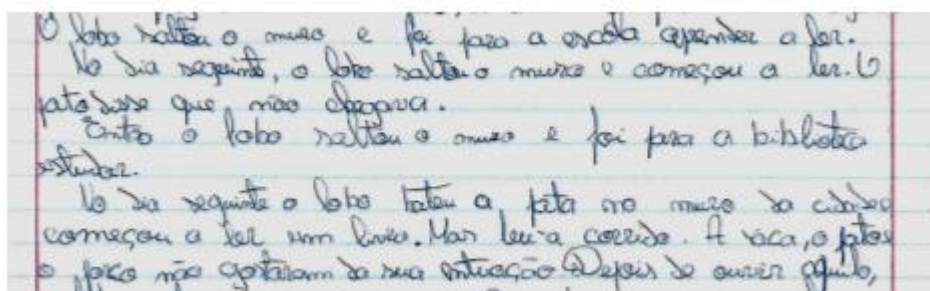 O lobo saltou o muro e foi para a escola aprender a ler.
No dia seguinte, o lobo saltou o muro e começou a ler. O
pato disse que não chegava.
Então o lobo saltou o muro e foi para a biblioteca
estudar.
No dia seguinte o lobo bateu a pata no muro da
começou a ler um livro. Mas leu-a corrido. A vaca, o pato e
o porco não gostaram da sua entuação. Depois de ouvir aquilo,